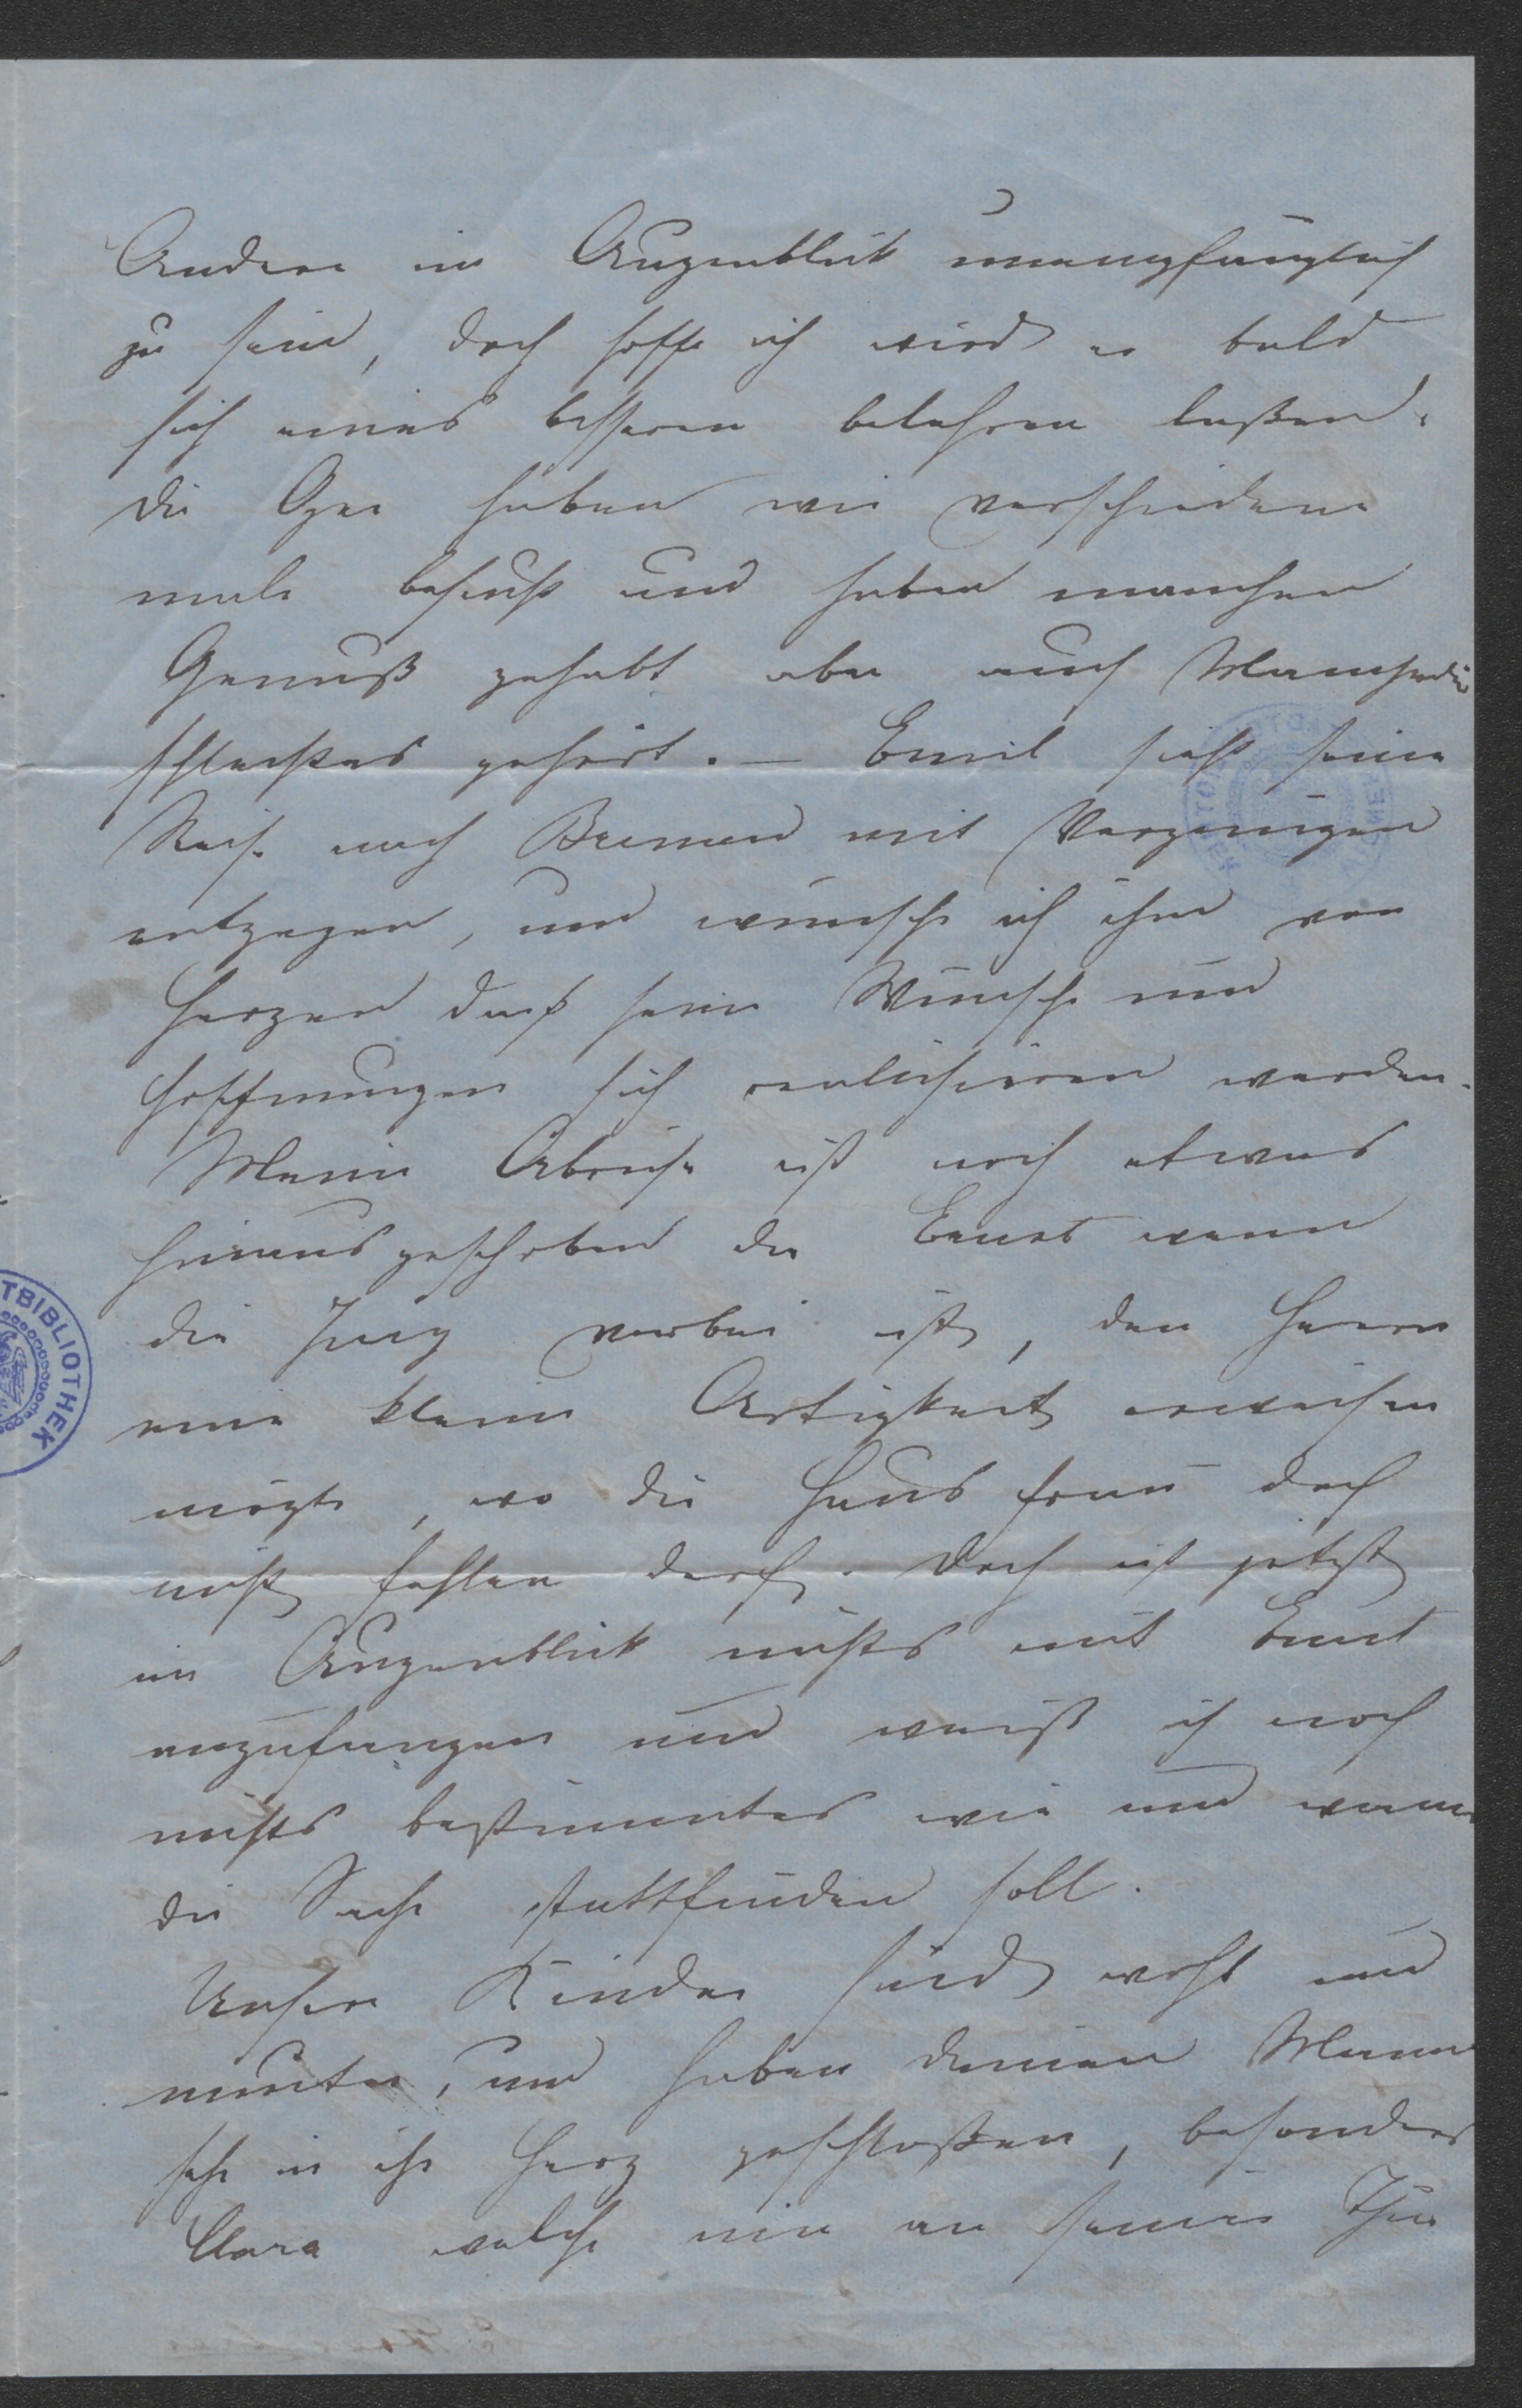 Andere im Augenblick unempfänglich
zu sein, doch hoffe ich wird er bald
sich eines besseren belehren laßen.
Die Oper haben wir verschiedene
male besucht und haben manchen
Genuß gehabt aber auch
schlechtes gehört. — Emil sieht seine
Reise nach Bremen mit Vergnügen
entgegen, und wünsche ich ihm von
Herzen daß seine Wünsche und
Hoffnungen sich realisieren werden.
Meine Abreise ist noch etwas
hinausgeschoben da Ernst wenn
die Jury vorbei ist, den Herren
eine kleine Artigkeit erweisen
mögte, wo die Hausfrau doch
nicht fehlen darf. Doch ist jetzt
im Augenblick nichts mit Ernst
anzufangen und weiß ich noch
nichts bestimmtes wie und wann
die Sache stattfinden soll.
Unsere Kinder sind wohl und
munter, und haben deinen Mann
sehr in ihr Herz geschloßen, besonders
Clara welche nie an seiner Thür
TBIBLIOTHEK